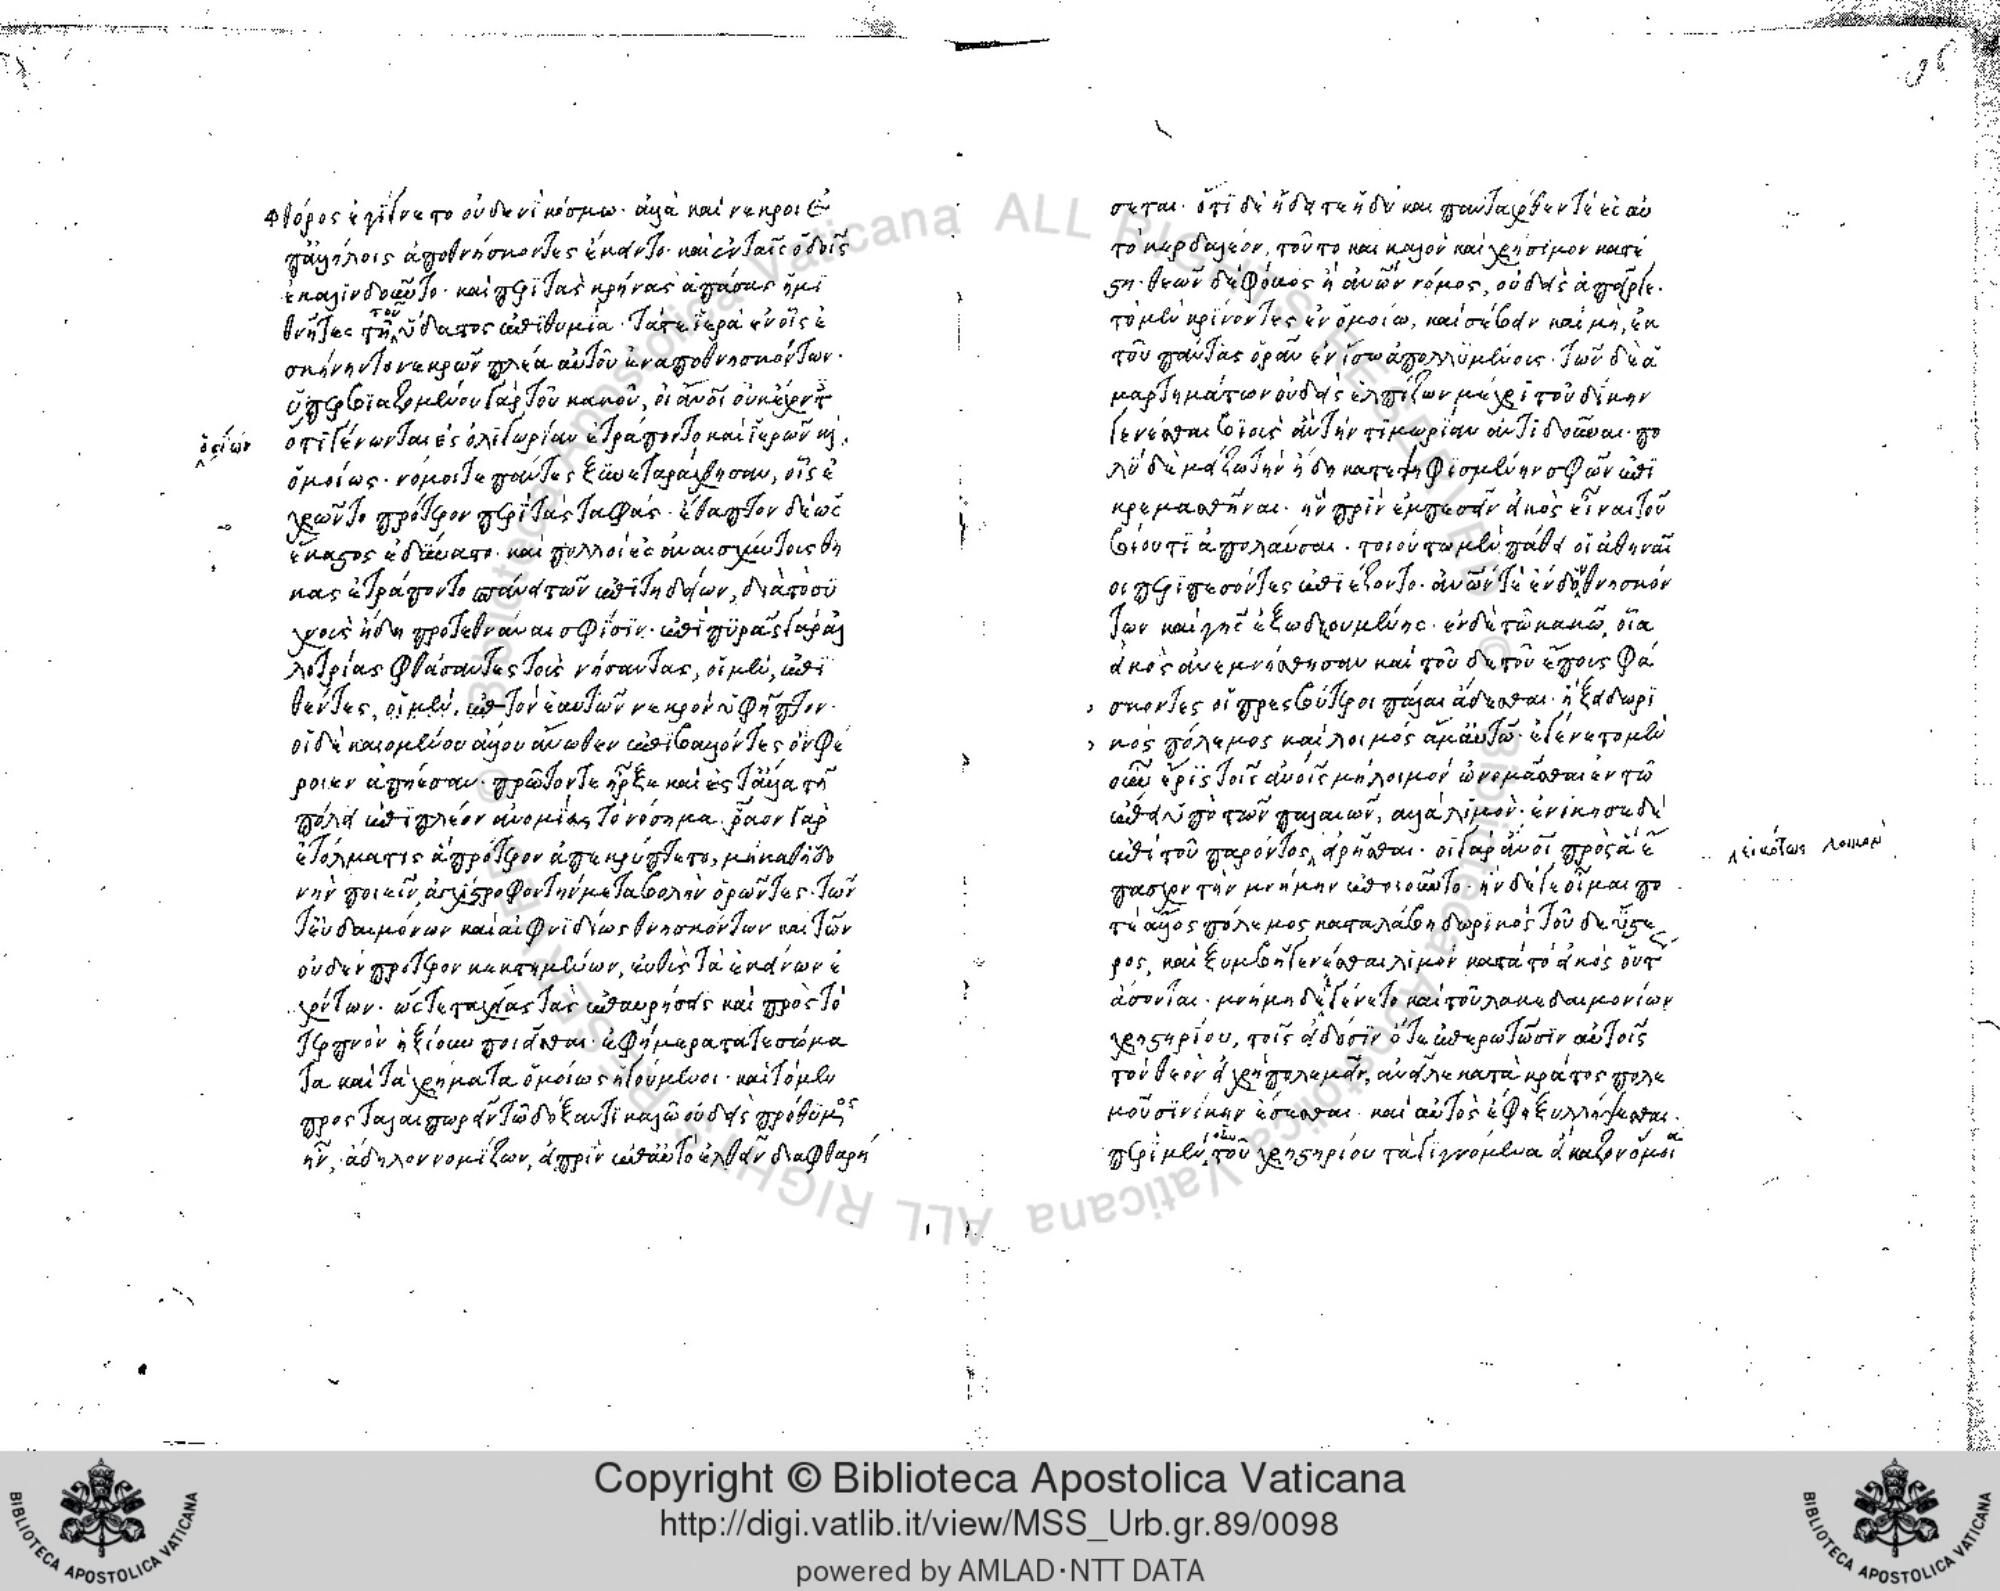 φθόρος ἐγίγνετο οὐδενὶ κόσμω· ἀλλὰ καὶ νεκροὶ ἐ
π' ἀλλήλοις ἀποθνήσκοντες ἔκειντο· καὶ ἐν ταῖς ὁδοῖς
ἐκαλινδοῦντο· καὶ περὶ τὰς κρήνας ἁπάσας ἡμι
θνῆτες τῆ τοῦ ὕδατος ἐπιθυμία· τά τε ἱερὰ ἐν οἷς ἐ
σκήνηντο νεκρῶν πλέα αὐτοῦ ἐναποθνησκόντων·
ὑπερβιαζομένου γὰρ τοῦ κακοῦ, οἱ ἄνοι οὐκ ἔχοντ
ὅτι γένωνται ἐς ὀλιγωρίαν ἐτράποντο καὶ ἱερῶν κὶ
ὁσίων
ὁμοίως· νόμοι τε πάντες ξυνεταράχθησαν, οἷς ἐ
χρῶντο πρότερον περὶ τὰς ταφάς· ἔθαπτον δὲ ὡς
ἕκαστος ἐδύνατο· καὶ πολλοὶ ἐς ἀναισχύντοις θή
κας ἐτράποντο σπάνει τῶν ἐπιτηδείων, διὰ τὸ συ
χνοὺς ἤδη προτεθνάναι σφίσιν· ἐπὶ πυρὰς γὰρ ἀλ
λοτρίας φθάσαντες τοὺς νήσαντας, οἱ μὲν, ἐπι
θέντες, οἱ μὲν, ἐπὶ τὸν ἑαυτῶν νεκρὸν ὑφῆπτον·
οἱ δὲ καιομένου ἄλλου ἄνωθεν ἐπιβαλόντες ὃν φέ
ροιεν ἀπήεσαν· πρῶτόν τε ἦρξε καὶ ἐς τἄλλα τῆ
πόλει ἐπὶ πλέον ἀνομίας τὸ νόσημα· ῥᾶον γὰρ
ἐτόλμα τις ἃ πρότερον ἀπεκρύπτετο, μὴ καθ' ἡδο
νὴν ποιεῖν, ἀγχίστροφον τὴν μεταβολὴν ὁρῶντες· τῶν
τ' εὐδαιμόνων καὶ αἰφνιδίως θνησκόντων καὶ τῶν
οὐδὲν πρότερον κεκτημένων, εὐθὺς τὰ ἐκείνων ἐ
χόντων· ὥστε ταχείας τὰς ἐπαυρήσεις καὶ πρὸς τὸ
τερπνὸν ἠξίουν ποιεῖσθαι· ἐφήμερα τά τε σώμα
τα καὶ τὰ χρήματα ὁμοίως ἡγούμενοι· καὶ τὸ μὲν
προσταλαιπωρεῖν τῶ δόξαντι καλῶ οὐδεὶς πρόθυμος
ἦν, ἄδηλον νομίζων, εἰ πρὶν ἐπ' αὐτὸ ἐλθεῖν διαφθαρή
σεται· ὅτι δὲ ἤδη τε ἡδὺ καὶ πανταχόθεν τὲ ἐς αὐ
τὸ κερδαλέον, τοῦτο καὶ καλὸν καὶ χρήσιμον κατέ
στη· θεῶν δὲ φόβος ἢ ἀνων νόμος, οὐδεὶς ἀπεῖργε·
τὸ μὲν κρίνοντες ἐν ὁμοίω, καὶ σέβειν καὶ μὴ, ἐκ
τοῦ πάντας ὁρᾶν ἐν ἴσω ἀπολλυμένους· τῶν δὲ ἁ
μαρτημάτων οὐδεὶς ἐλπίζων μέχρι τοῦ δίκην
γενέσθαι βιοὺς ἂν τὴν τιμωρίαν ἀντιδοῦναι· πο
λὺ δὲ μείζω τὴν ἤδη κατεψηφισμένην σφῶν ἐπι
κρεμασθῆναι· ἣν πρὶν ἐμπεσεῖν εἰκὸς εἶναι τοῦ
βίου τὶ ἀπολαῦσαι· τοιούτω μὲν πάθει οἱ ἀθηναῖ
οι περιπεσόντες ἐπιέζοντο· ἀνων τὲ ἔνδον θνησκόν
των καὶ γῆς ἔξω δηουμένης· ἐν δὲ τῶ κακῶ, οἷα
εἰκὸς ἀνεμνήσθησαν καὶ τοῦ δε τοῦ ἔπους φά
σκοντες οἱ πρεσβύτεροι πάλαι ἄδεσθαι· ἥξει δωρι
κὸς πόλεμος καὶ λοιμὸς ἅμ' αὐτῶ· ἐγένετο μὲν
οὖν ἔρις τοῖς ἀνοις μὴ λοιμὸν ὠνομάσθαι ἐν τῶ
ἔπει ὑπὸ τῶν παλαιῶν, ἀλλὰ λιμὸν· ἐνίκησε δὲ
ἐπὶ τοῦ παρόντος εἰρῆσθαι· οἱ γὰρ ἄνοι πρὸς ἃ ἔ
εἰκότως λοιμὸν
πασχον τὴν μνήμην ἐποιοῦντο· ἢν δέ γε οἶμαι πο
τὲ ἄλλος πόλεμος καταλάβη δωρικὸς τοῦ δε ὕστε
ρος, καὶ ξυμβῆ γενέσθαι λιμὸν κατὰ τὸ εἰκὸς οὕτ
ἄσονται· μνήμη δὲ ἐγένετο καὶ τοῦ λακεδαιμονίων
χρηστηρίου, τοῖς εἰδόσιν ὅτε ἐπερωτῶσιν αὐτοῖς
τὸν θεὸν εἰ χρὴ πολεμεῖν, ἀνεῖλε κατὰ κράτος πολε
μοῦσι νίκην ἔσεσθαι· καὶ αὐτὸς ἔφη ξυλλήψεσθαι·
περὶ μὲν οὖν τοῦ χρηστηρίου τὰ γιγνόμενα εἴκαζον ὅμοια
Copyright © Biblioteca Apostolica Vaticana
http://digi.vatlib.it/view/MSS_Urb.gr.89/0098
powered by AMLAD·NTT DATA
BIBLIOTECA APOSTOLICA VATICANA
BIBLIOTECA APOSTOLICA VATICANA